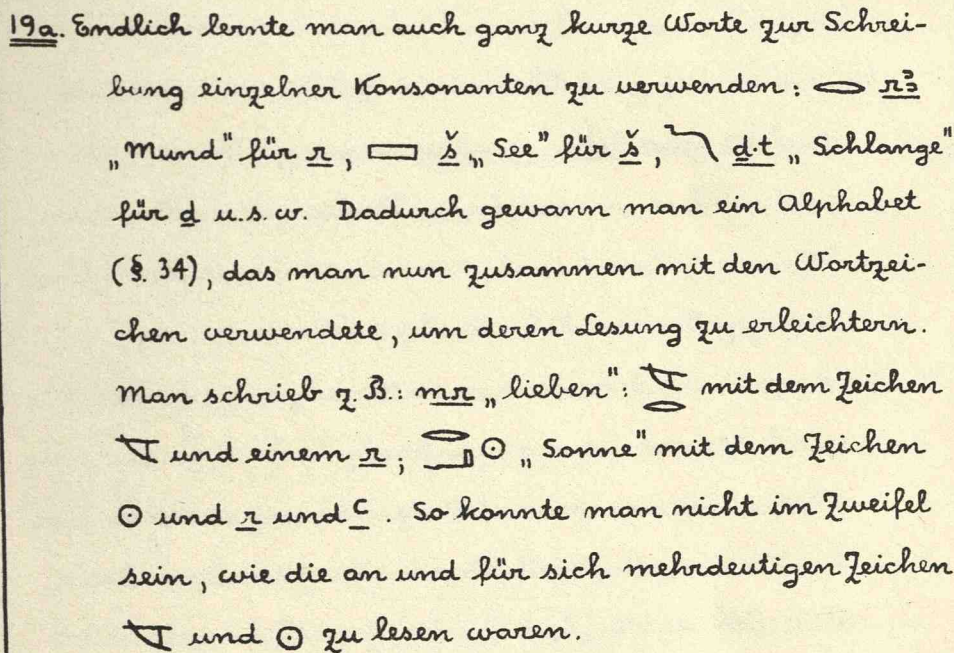 19a. Endlich lernte man auch ganz kurze Worte zur Schrei-
bung einzelner Konsonanten zu verwenden: 𓂋 rꜣ
„Mund“ für r, 𓈙 š „See“ für š, 𓆓 d·t „Schlange“
für d u.s.w. Dadurch gewann man ein Alphabet
(§. 34), das man nun zusammen mit den Wortzei-
chen verwendete, um deren Lesung zu erleichtern.
Man schrieb z.B.: mr „lieben“: 𓌸𓂋 mit dem Zeichen
𓌸 und einem r; 𓂋𓂝𓇳 „Sonne“ mit dem Zeichen
𓇳 und r und ꜥ. So konnte man nicht im Zweifel
sein, wie die an und für sich mehrdeutigen Zeichen
𓌸 und 𓇳 zu lesen waren.